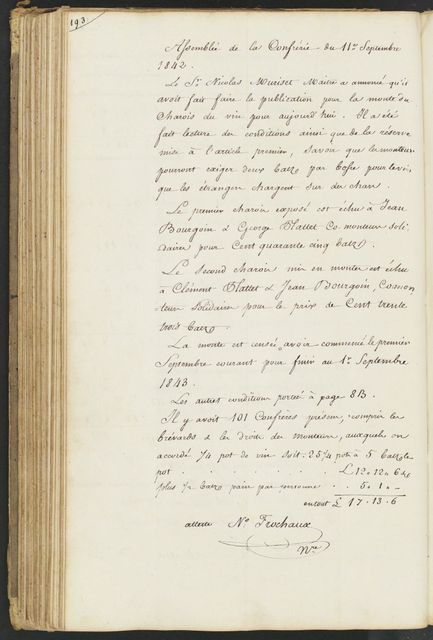 193.
Assemblée de la Confrérie du 11e Septembre
1842.
Le Sr. Nicolas Muriset Maitre a annoncé qu'il
avoit fait faire la publication pour la monte du
charois du vin pour aujourd'hui. Il a été
fait lecture des conditions ainsi que de la réserve
mise à l'article premier, savoir que les monteurs
pourront exiger deux batz par bosse pour le vin
que les étrangers chargent sur des chars.
Le premier charoi exposé est échu à Jean
Bourgoin & George Plattet Co-monteur soli-
daires pour Cent quarante cinq batz.
Le Second charoi mis en montes est échu
à Clément Plattet & Jean Bourgoin, Comon-
teur Solidaires pour le prix de Cent trente
trois batz.
La monte est censée avoir commencé le premier
Septembre courant pour finir au 1er Septembre
1843.
Les autres conditions portée à page 8B.
Il y avoit 101 Confrères présens, compris les
brévards & les droits des monteurs, auxquels on
accorde 1/4 pot de vin soit: 25 1/4 pots à 5 batz le
pot . . . . . £ 12 . 12 . 6
plus 1/2 batz pain par personne . . 5 . 1 . -
en tout £ 17 . 13 . 6
atteste Ns. Frochaux
Nre